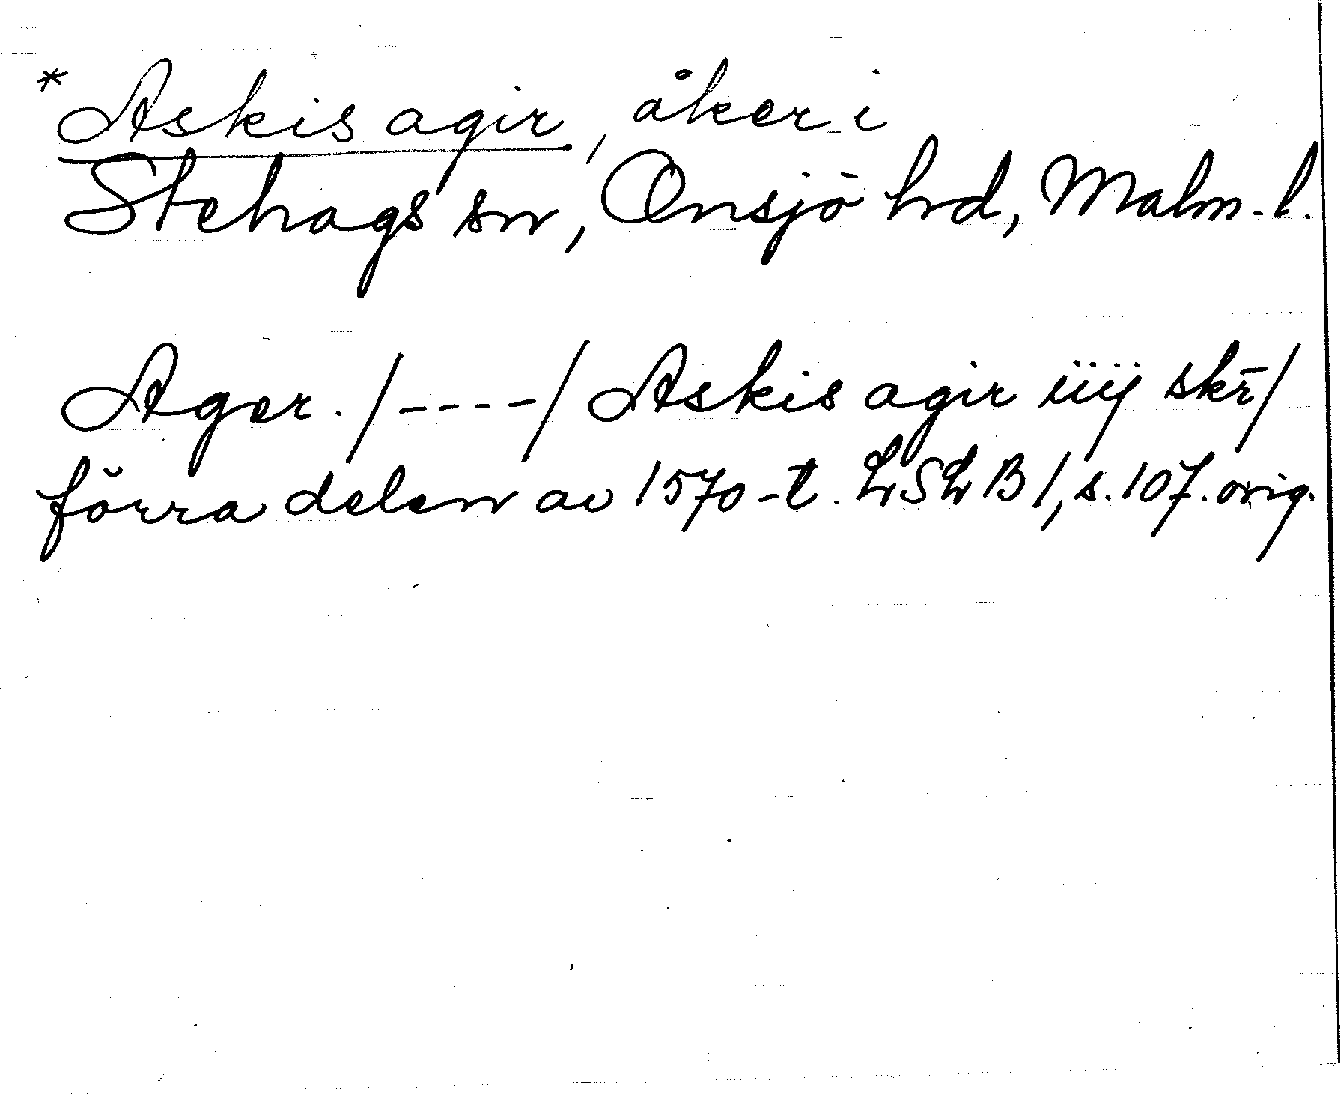 *Askis agir, åker i
Stehags sn, Onsjö hd, Malm. l.
Ager. /----/ Askis agir iiij skr̄/
förra delen av 1570-t. LSLB 1, s. 107. orig.